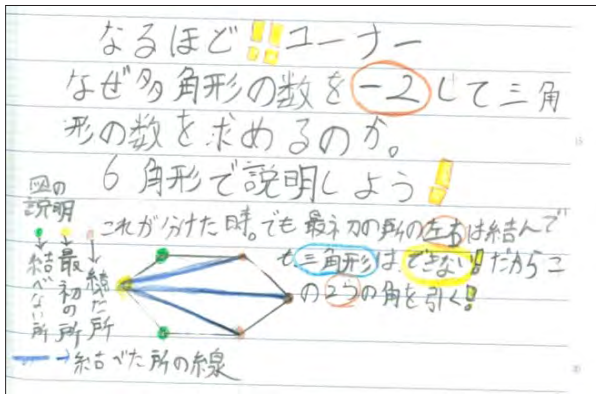 なるほど!!コーナー
なぜ多角形の数を-2して三角
形の数を求めるのか。
6角形で説明しよう!
図の
説明
結べない所
最初の所
結べた所
これが分けた時。でも最初の所の左右は結んで
も三角形はできない!だからこ
の2つの角を引く!
→結べた所の線